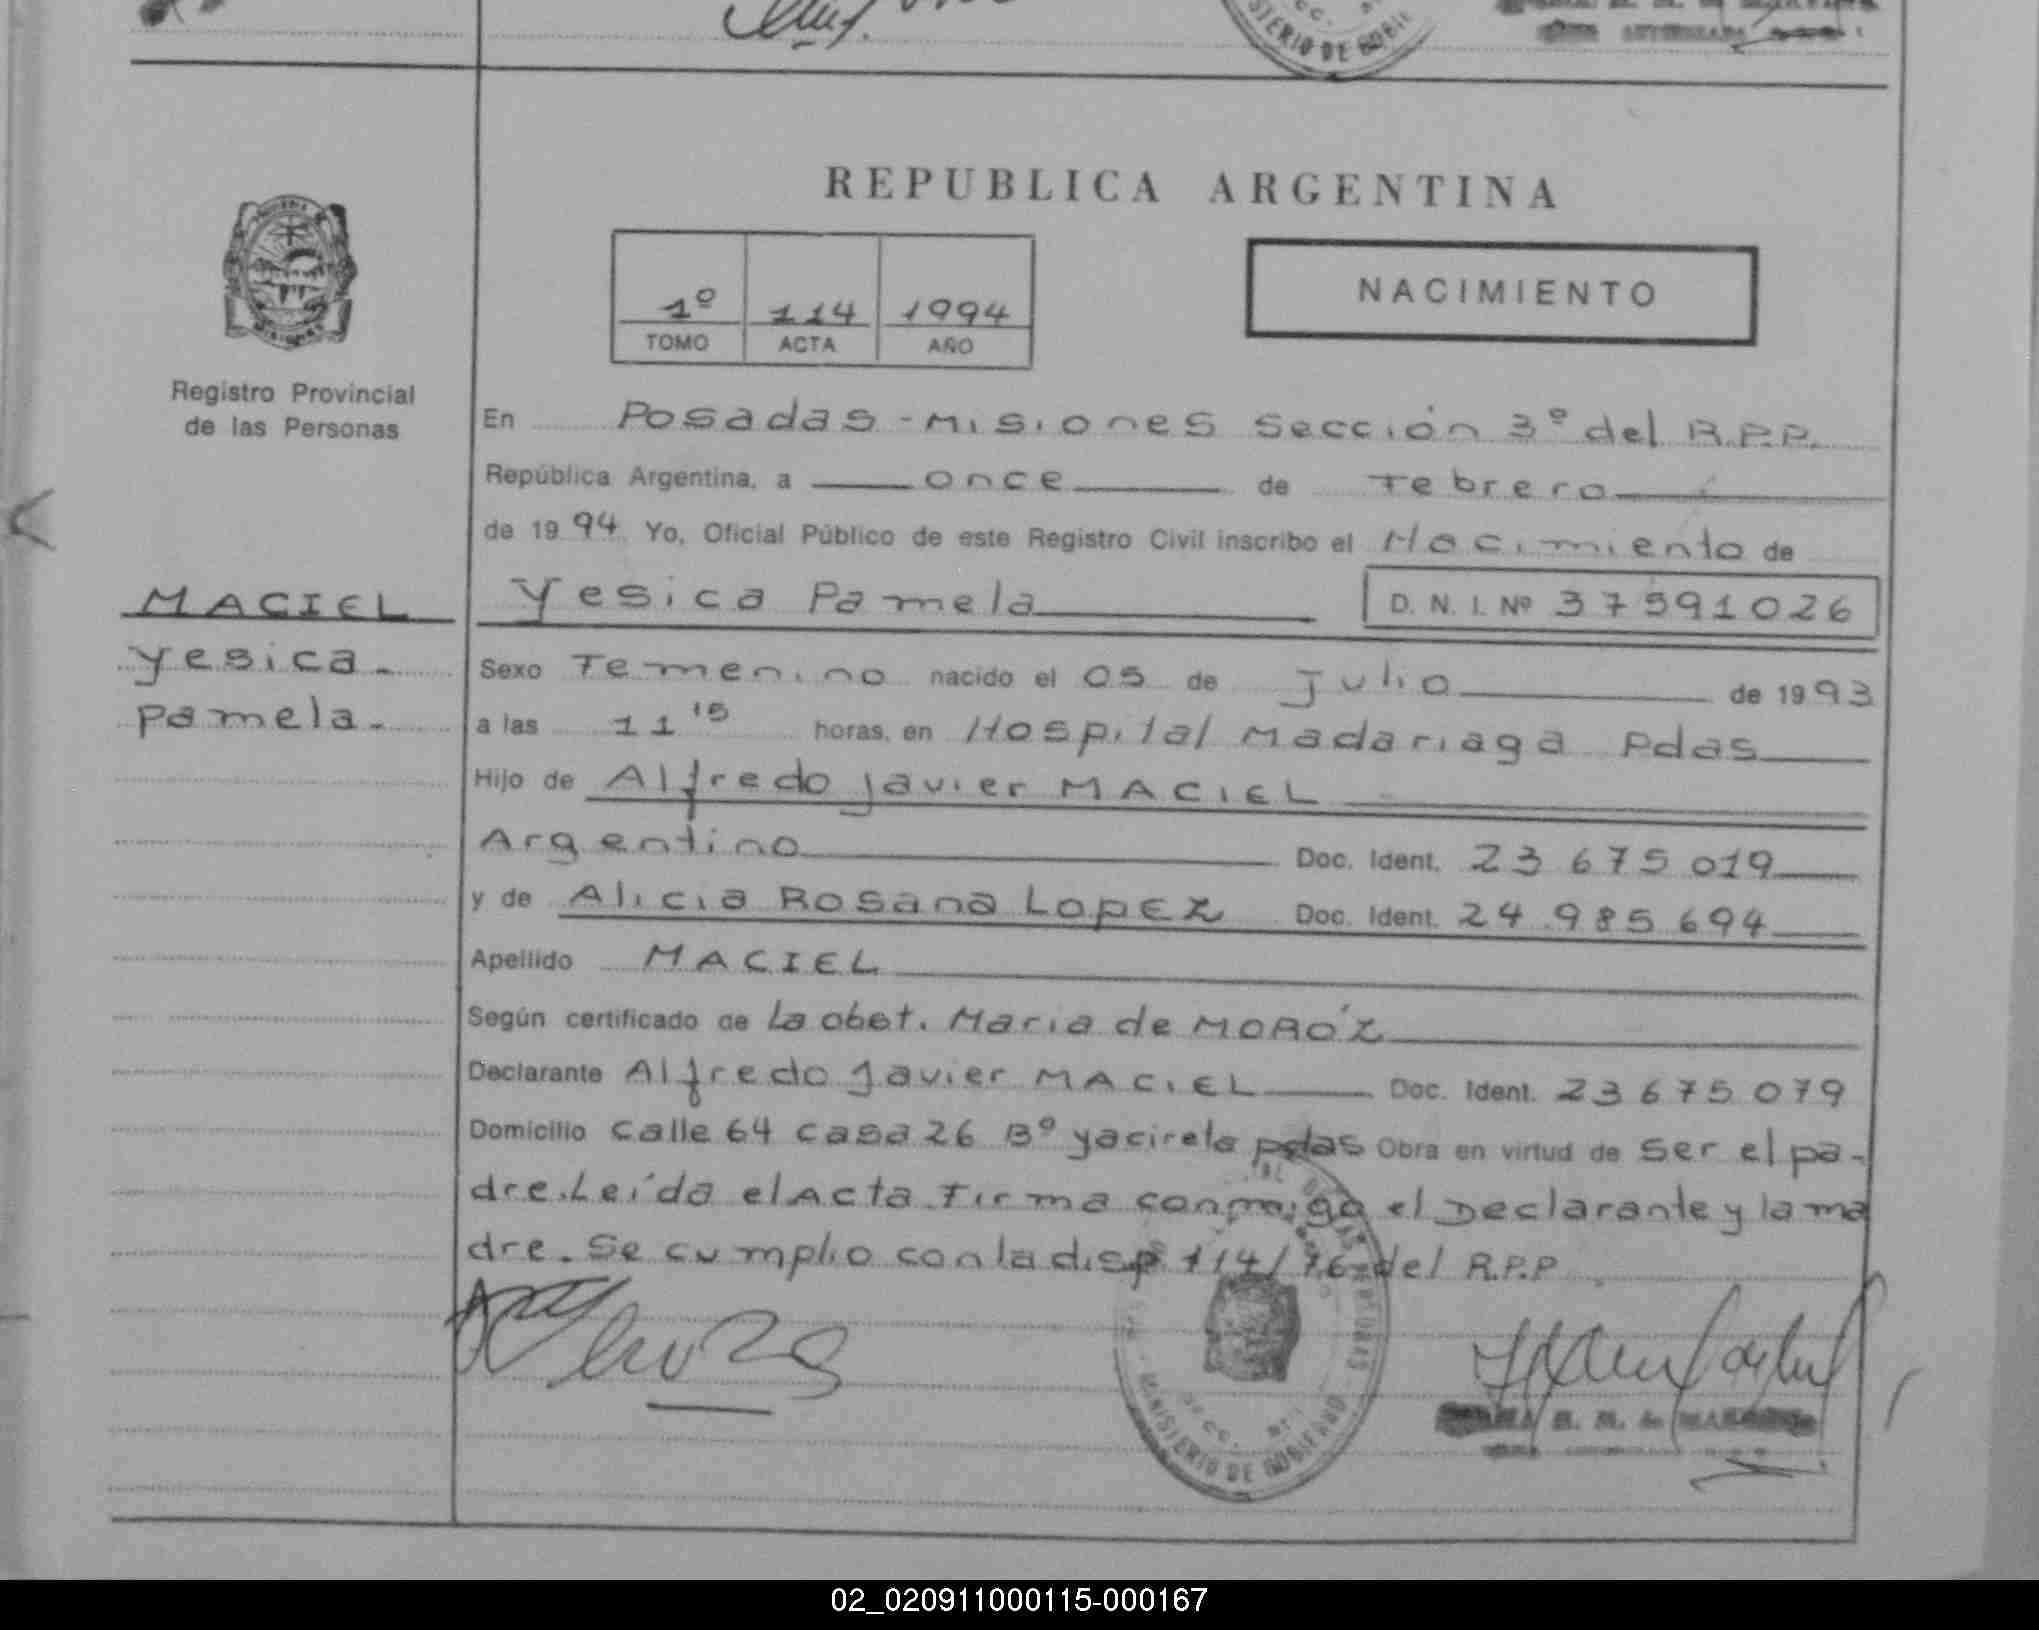 MINISTERIO DE GOBIE
REPUBLICA ARGENTINA
1º 114 1994
TOMO ACTA AÑO
NACIMIENTO
Registro Provincial
de las Personas
En Posadas - Misiones Sección 3º del R.P.P.
República Argentina, a once de Febrero
de 1994 Yo, Oficial Público de este Registro Civil inscribo el Nacimiento de
MACIEL
Yesica
Pamela
Yesica Pamela D. N. I. Nº 37591026
Sexo Femenino nacido el 05 de Julio de 1993
a las 11 15 horas, en Hospital Madariaga Pdas
Hijo de Alfredo Javier MACIEL
Argentino Doc. Ident. 23 675 019
y de Alicia Rosana LopEz Doc. Ident. 24.985 694
Apellido MACIEL
Según certificado de La obst. Maria de MORÓZ
Declarante Alfredo Javier MACIEL Doc. Ident. 23 675 079
Domicilio calle 64 casa 26 Bº yacireta pdas Obra en virtud de ser el pa-
dre. Leída el Acta Firma conmigo el Declarante y la ma
dre. Se cumplio con la disp 114/76 del R.P.P
MINISTERIO DE GOBIERNO
02_020911000115-000167